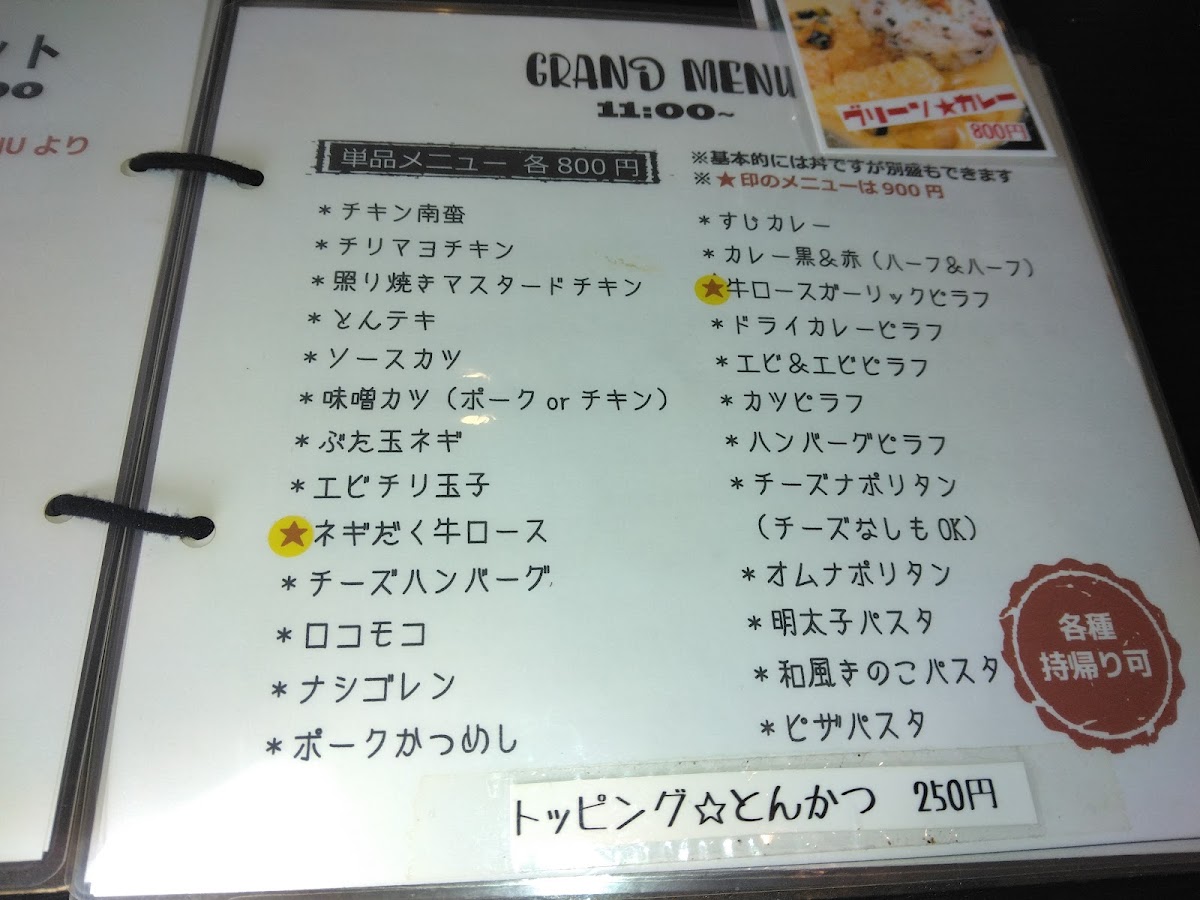 ット
00
NU より
GRAND MENU
11:00~
グリーン★カレー
800円
単品メニュー 各800円
※基本的には丼ですが別盛もできます
※★印のメニューは900円
＊チキン南蛮
＊チリマヨチキン
＊照り焼きマスタードチキン
＊とんテキ
＊ソースカツ
＊味噌カツ（ポーク or チキン）
＊ぶた玉ネギ
＊エビチリ玉子
★ネギだく牛ロース
＊チーズハンバーグ
＊ロコモコ
＊ナシゴレン
＊ポークかつめし
＊すじカレー
＊カレー黒＆赤（ハーフ＆ハーフ）
★牛ロースガーリックピラフ
＊ドライカレーピラフ
＊エビ＆エビピラフ
＊カツピラフ
＊ハンバーグピラフ
＊チーズナポリタン
（チーズなしもOK）
＊オムナポリタン
＊明太子パスタ
＊和風きのこパスタ
＊ピザパスタ
各種
持帰り可
トッピング☆とんかつ 250円